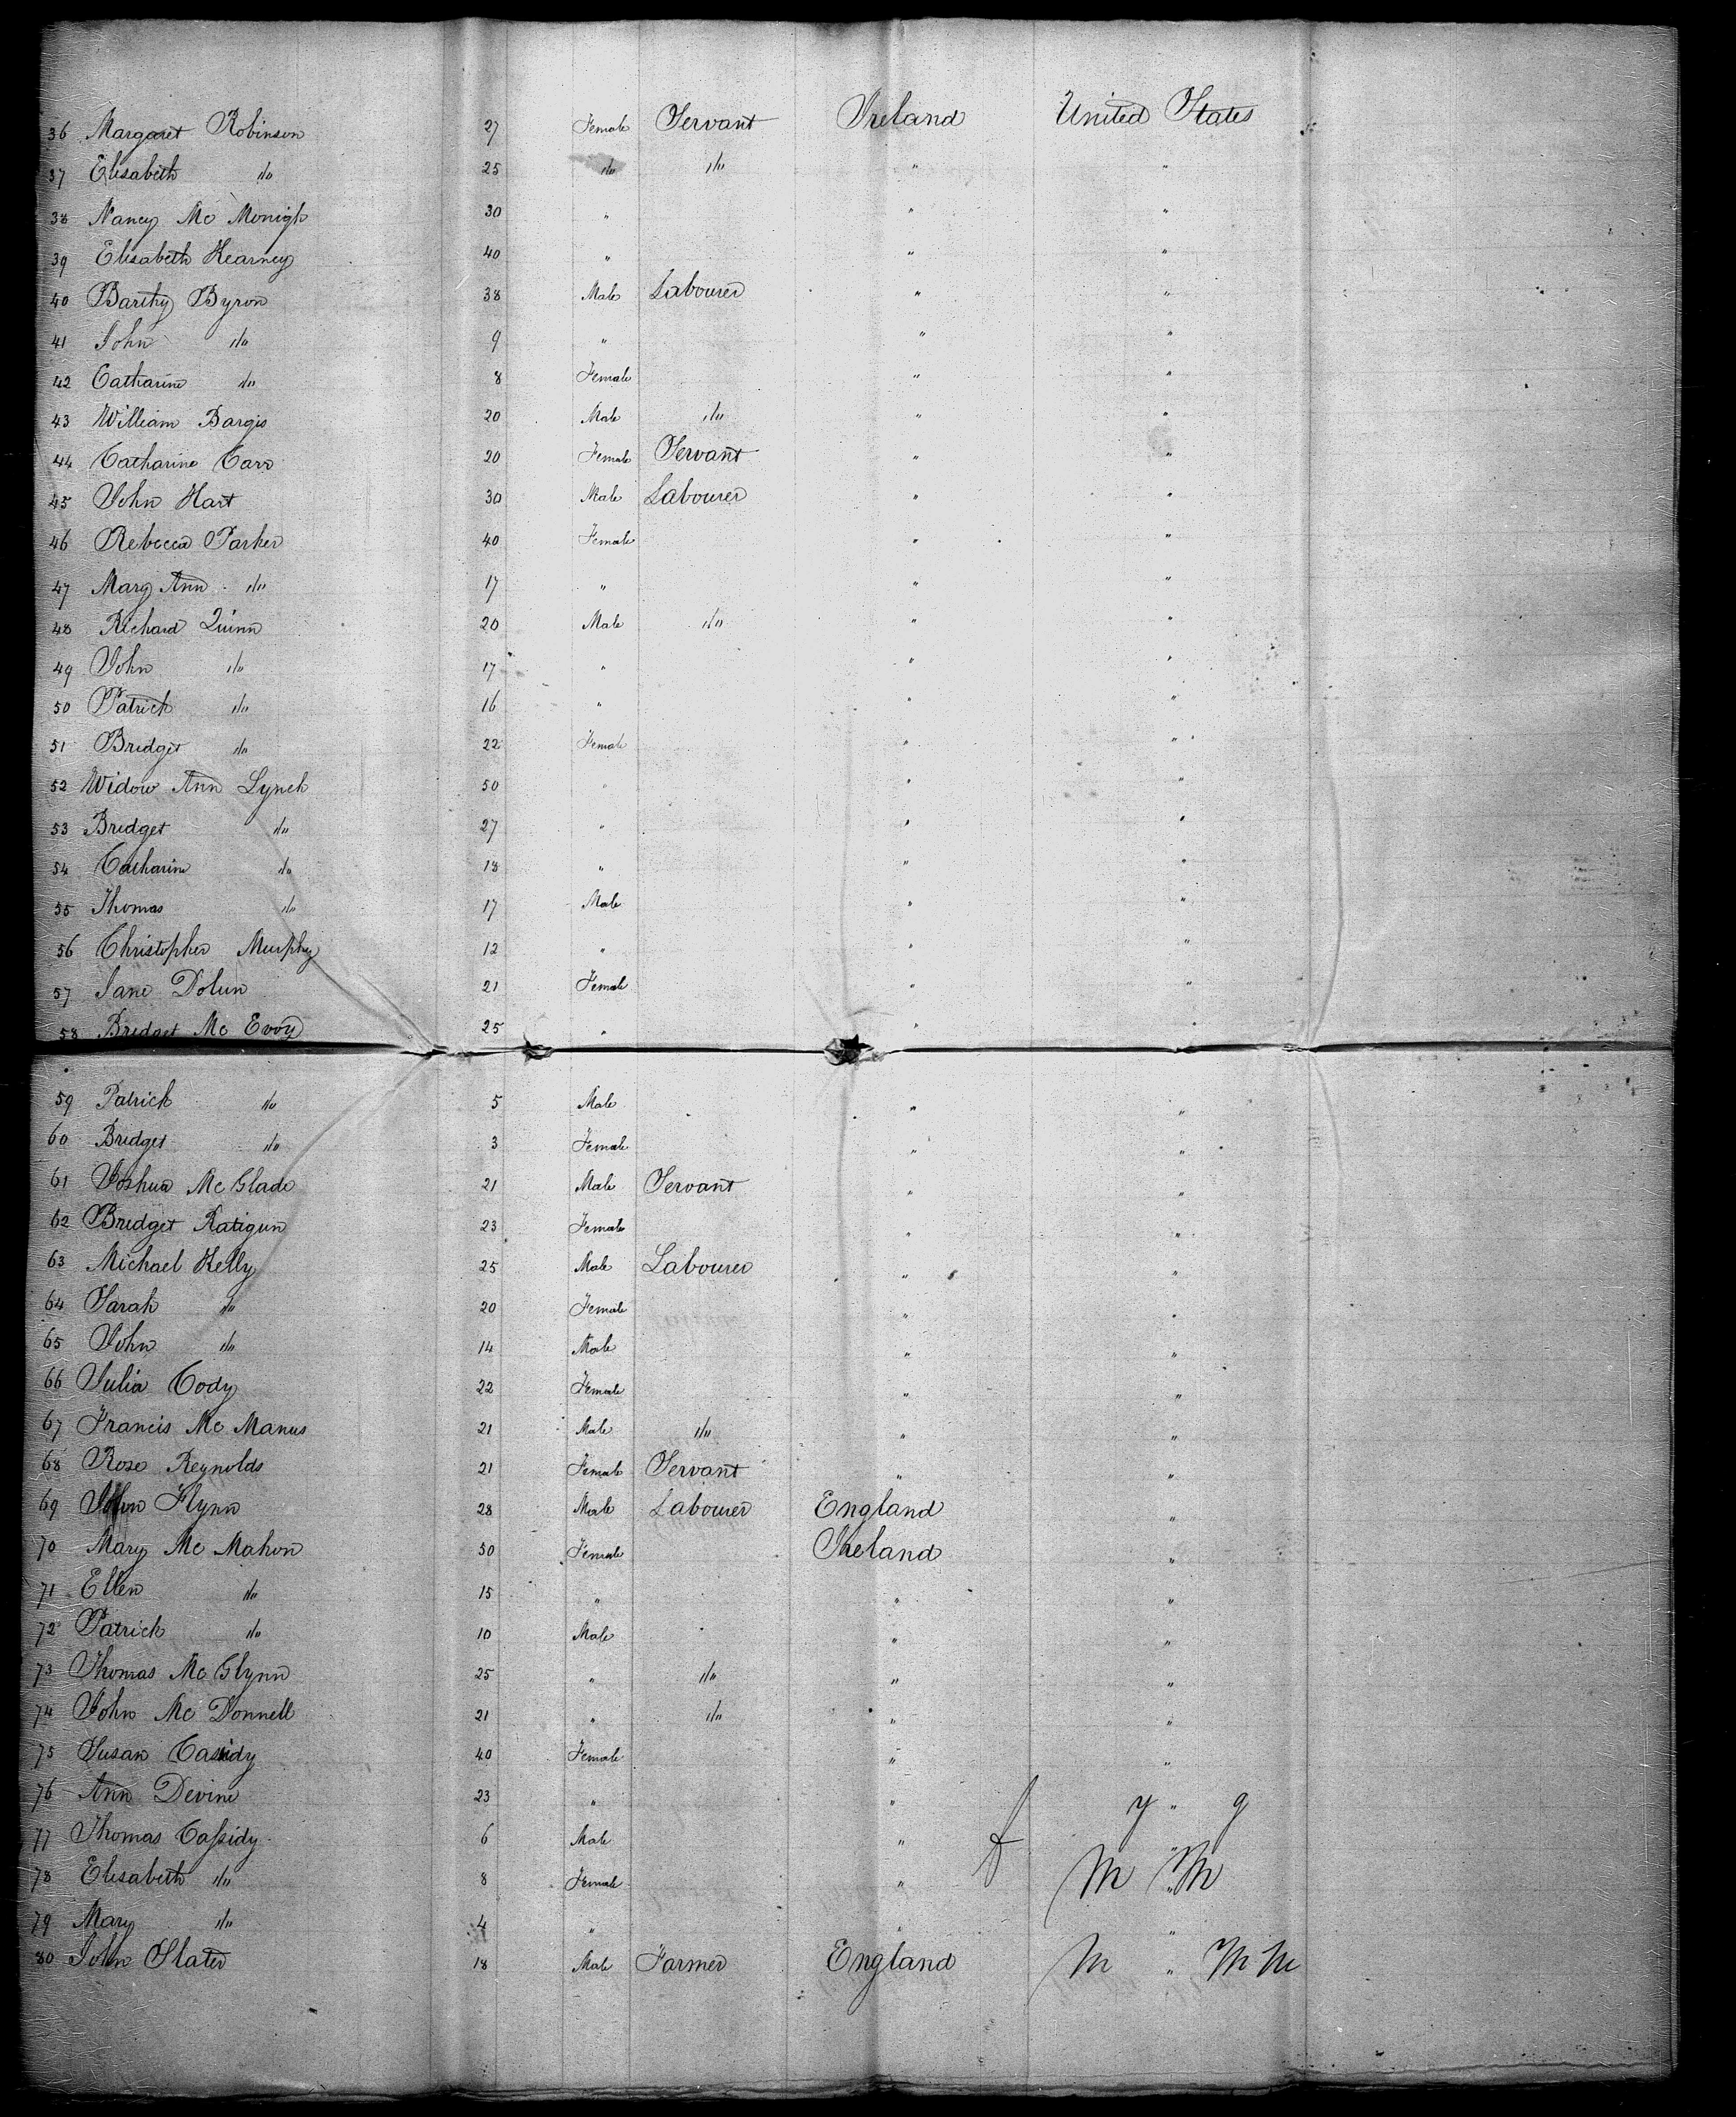 36 Margaret Robinson 27 Female Servant Ireland United States
37 Elisabeth do 25 do do " "
38 Nancy Mc Monigle 30 " " "
39 Elisabeth Kearney 40 " " "
40 Barthy Byron 38 Male Labourer " "
41 John do 9 " " "
42 Catharine do 8 Female " "
43 William Bargis 20 Male do " "
44 Catharine Carr 20 Female Servant " "
45 John Hart 30 Male Labourer " "
46 Rebecca Parker 40 Female " "
47 Mary Ann do 17 " " "
48 Richard Quinn 20 Male do " "
49 John do 17 " " "
50 Patrick do 16 " " "
51 Bridget do 22 Female " "
52 Widow Ann Lynch 50 " " "
53 Bridget do 27 " " "
54 Catharine do 18 " " "
55 Thomas do 17 Male " "
56 Christopher Murphy 12 " " "
57 Jane Dolun 21 Female " "
58 Bridget Mc Evoy 25 " " "
59 Patrick do 5 Male " "
60 Bridget do 3 Female " "
61 Joshua Mc Glade 21 Male Servant " "
62 Bridget Ratigun 23 Female " "
63 Michael Kelly 25 Male Labourer " "
64 Sarah do 20 Female " "
65 John do 14 Male " "
66 Julia Cody 22 Female " "
67 Francis Mc Manus 21 Male do " "
68 Rose Reynolds 21 Female Servant " "
69 John Flynn 28 Male Labourer England "
70 Mary Mc Mahon 50 Female Ireland "
71 Ellen do 15 " " "
72 Patrick do 10 Male " "
73 Thomas Mc Glynn 25 " do " "
74 John Mc Donnell 21 " do " "
75 Susan Cassidy 40 Female " "
76 Ann Devine 23 " " y " g
77 Thomas Cassidy 6 Male " f "
78 Elisabeth do 8 Female " M " M
79 Mary do 4 " " "
80 John Slater 18 Male Farmer England M " M M